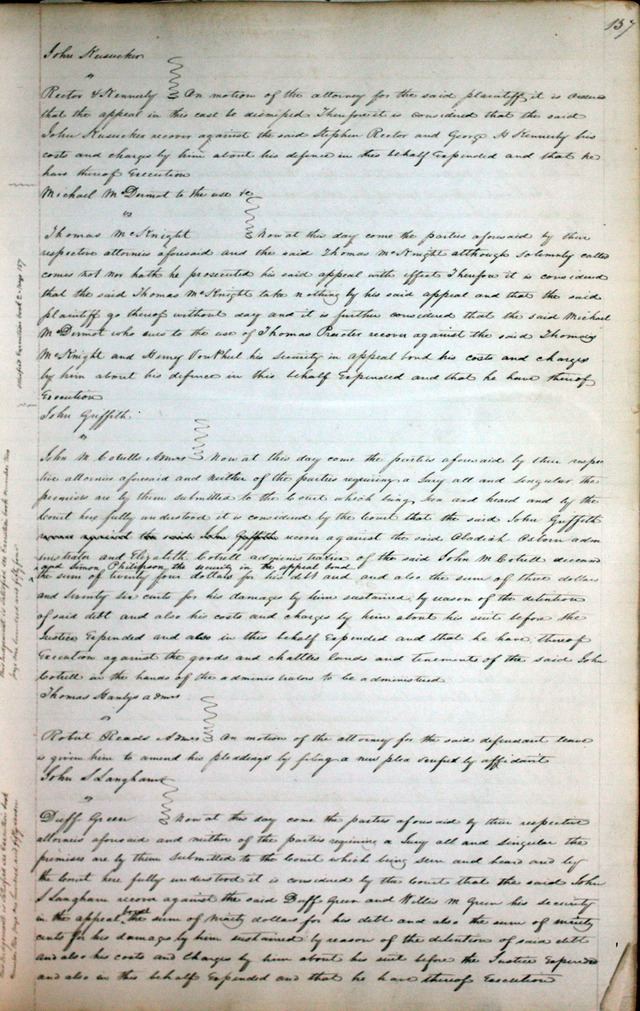 137
John Nusucker
"
Rector & Kennerly On motion of the attorney for the said plaintiff it is ordered
that the appeal in this case be dismissed Therefore it is considered that the said
John Nusucker recover against the said Stephen Rector and George H Kennerly his
costs and charges by him about his defence in this behalf Expended and that he
have thereof Execution
Michael McDermot to the use &c
"
Thomas McKnight Now at this day come the parties aforesaid by their
respective attornies aforesaid and the said Thomas McKnight although solemnly called
comes not nor hath he prosecuted his said appeal with effect Therefore it is considered
that the said Thomas McKnight take nothing by his said appeal and that the said
plaintiff go thereof without day and it is further considered that the said Michael
McDermot who sues to the use of Thomas recover against the said Thomas
McKnight and Henry Von Phul his security in appeal bond his costs and charges
by him about his defence in this behalf Expended and that he have thereof
Execution
John Griffith
"
John M Cotrell Admrs Now at this day come the parties aforesaid by their respec
tive attornies aforesaid and neither of the parties requiring a Jury all and singular the
premises are by them submitted to the Court which being seen and heard and by the
Court here fully understood it is considered by the Court that the said John Griffith
recover against the said Obadiah Osborn adm
inistrator and Elizabeth Cotrell administratrix of the said John M Cotrell deceased
and Simon Philipson the security in the appeal bond
the sum of twenty four dollars for his debt and and also the sum of three dollars
and seventy six cents for his damages by him sustained by reason of the detention
of said debt and also his costs and charges by him about his suit before the
Justice Expended and also in this behalf Expended and that he have thereof
Execution against the goods and chattles lands and tenements of the said John
Cotrell in the hands of the administrators to be administered
Thomas Hanlys admrs
"
Robert Reads Admrs On motion of the attorney for the said defendant leave
is given him to amend his pleadings by filing a new plea verified by affidavit
John S Langham
"
Duff Green Now at this day come the parties aforesaid by their respective
attornies aforesaid and neither of the parties requiring a Jury all and singular the
premises are by them submitted to the Court which being seen and heard and by
the Court here fully understood it is considered by the Court that the said John
S Langham recover against the said Duff Green and Willis M Green his security
in the appeal the sum of Ninety dollars for his debt and also the sum of ninety
cents for his damages by him sustained by reason of the detention of said debt
and also his costs and charges by him about his suit before the Justice Expended
and also in this behalf Expended and that he have thereof Execution